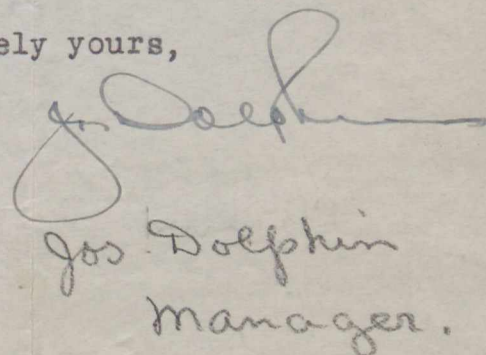 ely yours,
Jos Dolphin
Jos Dolphin
Manager.